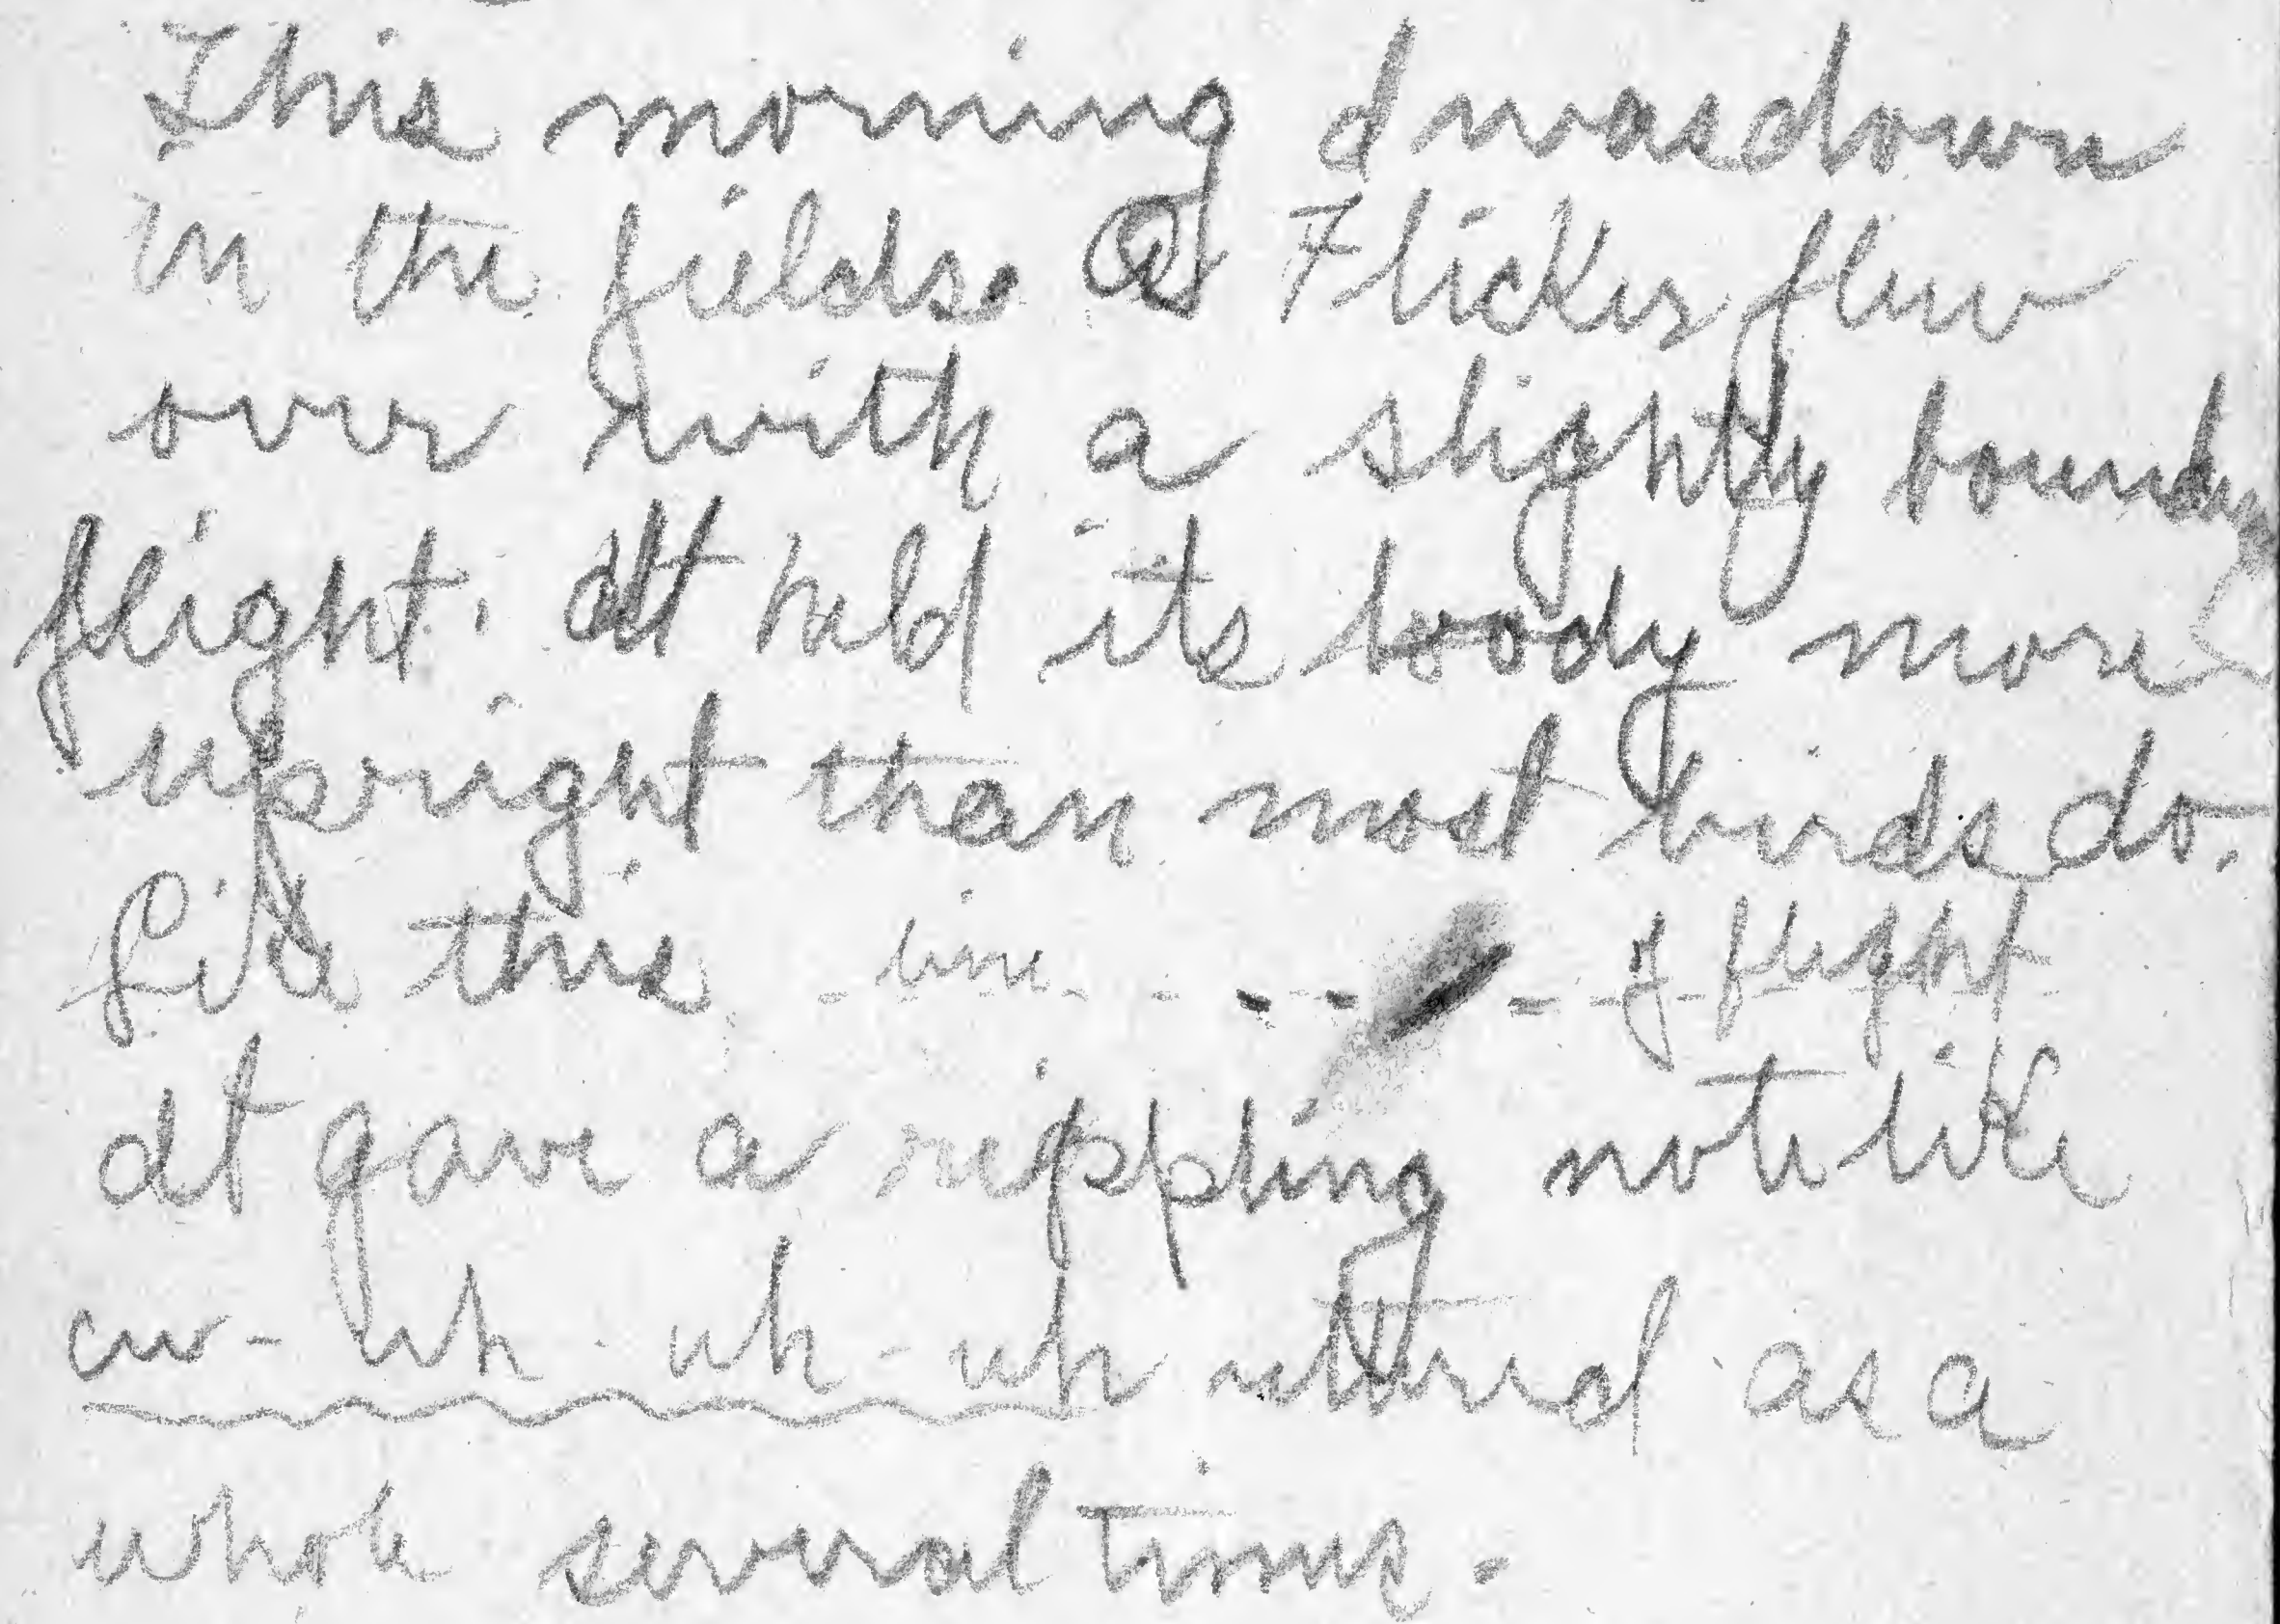 This morning I was down
in the fields. A Flicker flew
over with a slighty bounding
flight. It held its body more
upright than most birds do.
like this - line - - - - - - of flight
It gave a rippling note like
cur - uh - uh - uh uttered as a
whole several times.